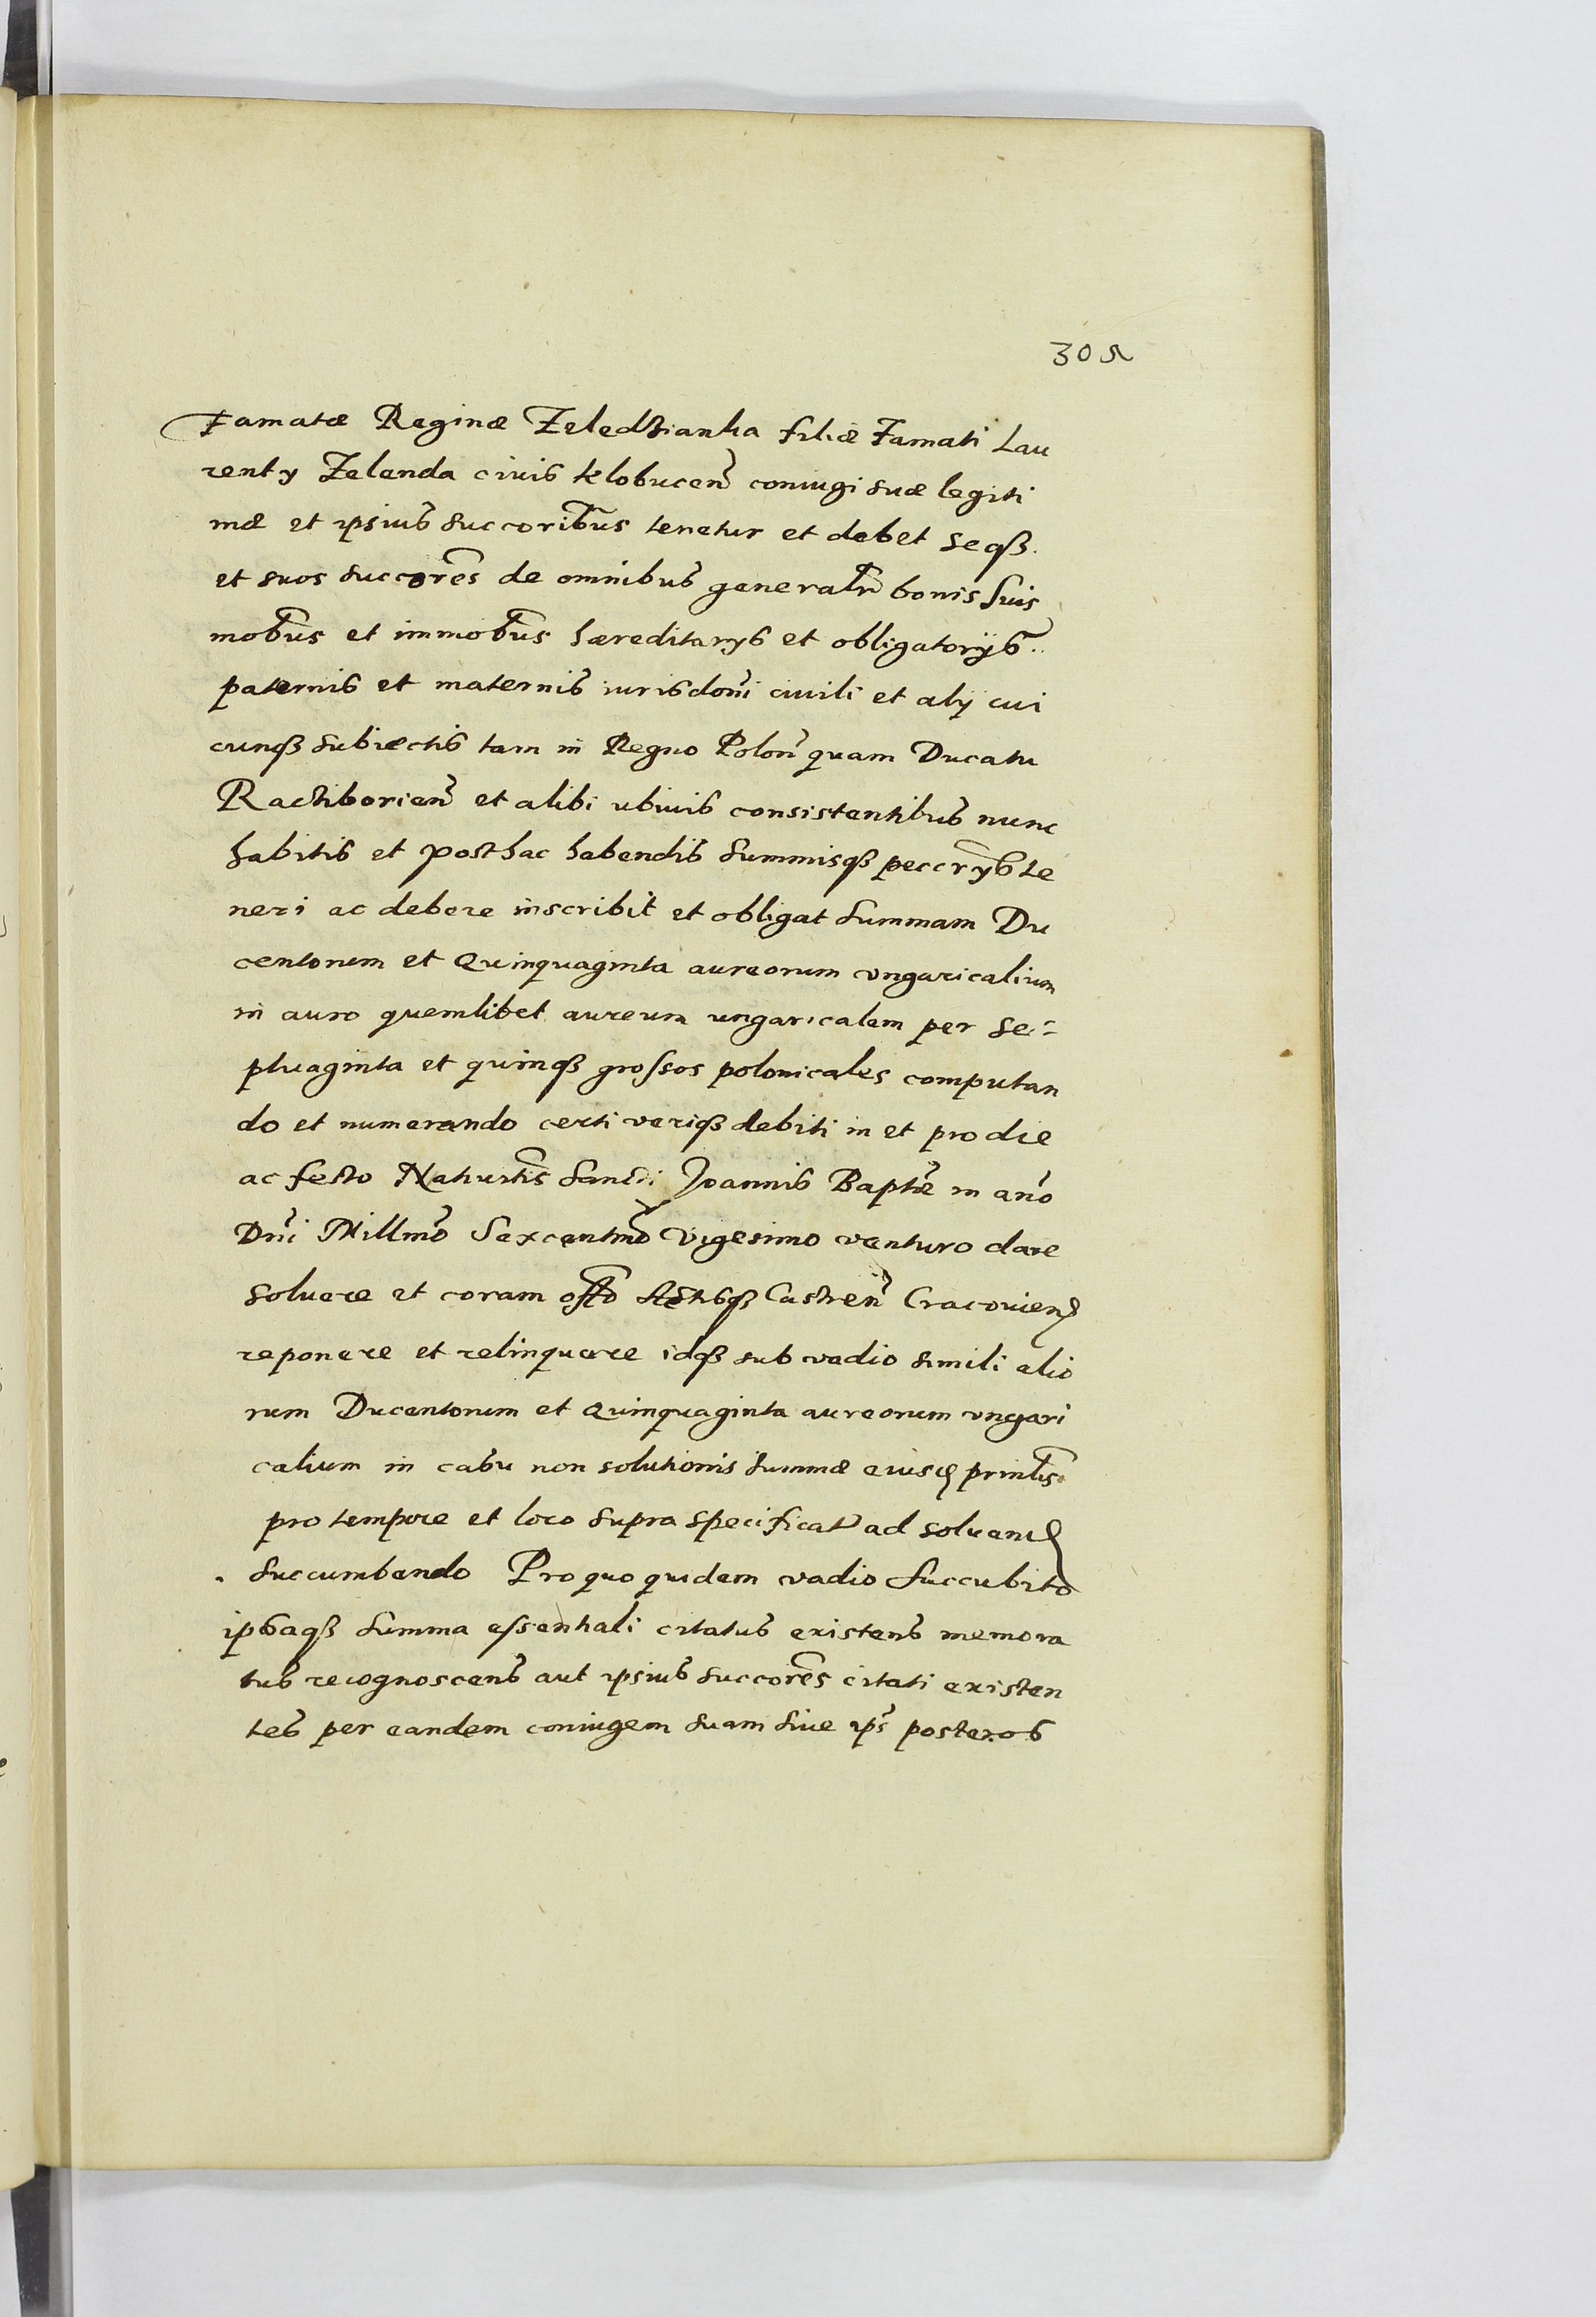 305
Famatæ Reginæ Zeledzianka filiæ Famati Lau
renty Zelenda civis Klobucen̄ coniugi suæ legiti
mæ et ipsius succoribus tenetur et debet seqꝫ
et suos succores de omnibus generalr̄ bonis suis
mobus et immobus hæreditarys et obligatorijs
paternis et maternis iurisdoni civili et alij cui
cunqꝫ subiectis tam in Regno Polon̄ quam Ducatu
Ractiborien̄ et alibi ubivis consistentibus nunc
habitis et posthac habendis summisqꝫ peccrys te
neri ac debere inscribit et obligat summam Du
centorum et Quinquaginta aureorum vngaricalium
in auro quemlibet aureum ungaricalem per se
ptuaginta et quinqꝫ grossos polonicales computan
do et numerando certi veriqꝫ debiti in et pro die
ac festo Natiurtis Sancti Joannis Baptæ in ano
Dni Millmo Sexcentmo Vigesimo venturo dare
soluere et coram offo Actisqꝫ Castren̄ Cracovien̄
reponere et relinquere idqꝫ sub vadio simili alio
rum Ducentorum et Quinquaginta aureorum vngari
calium in casu non solutionis summæ eiusd printis
pro tempore et loco supra specificat ad soluend
succumbendo Pro quo quidem vadio succubito
ipsaqꝫ summa essentiali citatus existens memora
tus recognoscens aut ipsius succores citati existen
tes per eandem coniugem suam siue ips posteros